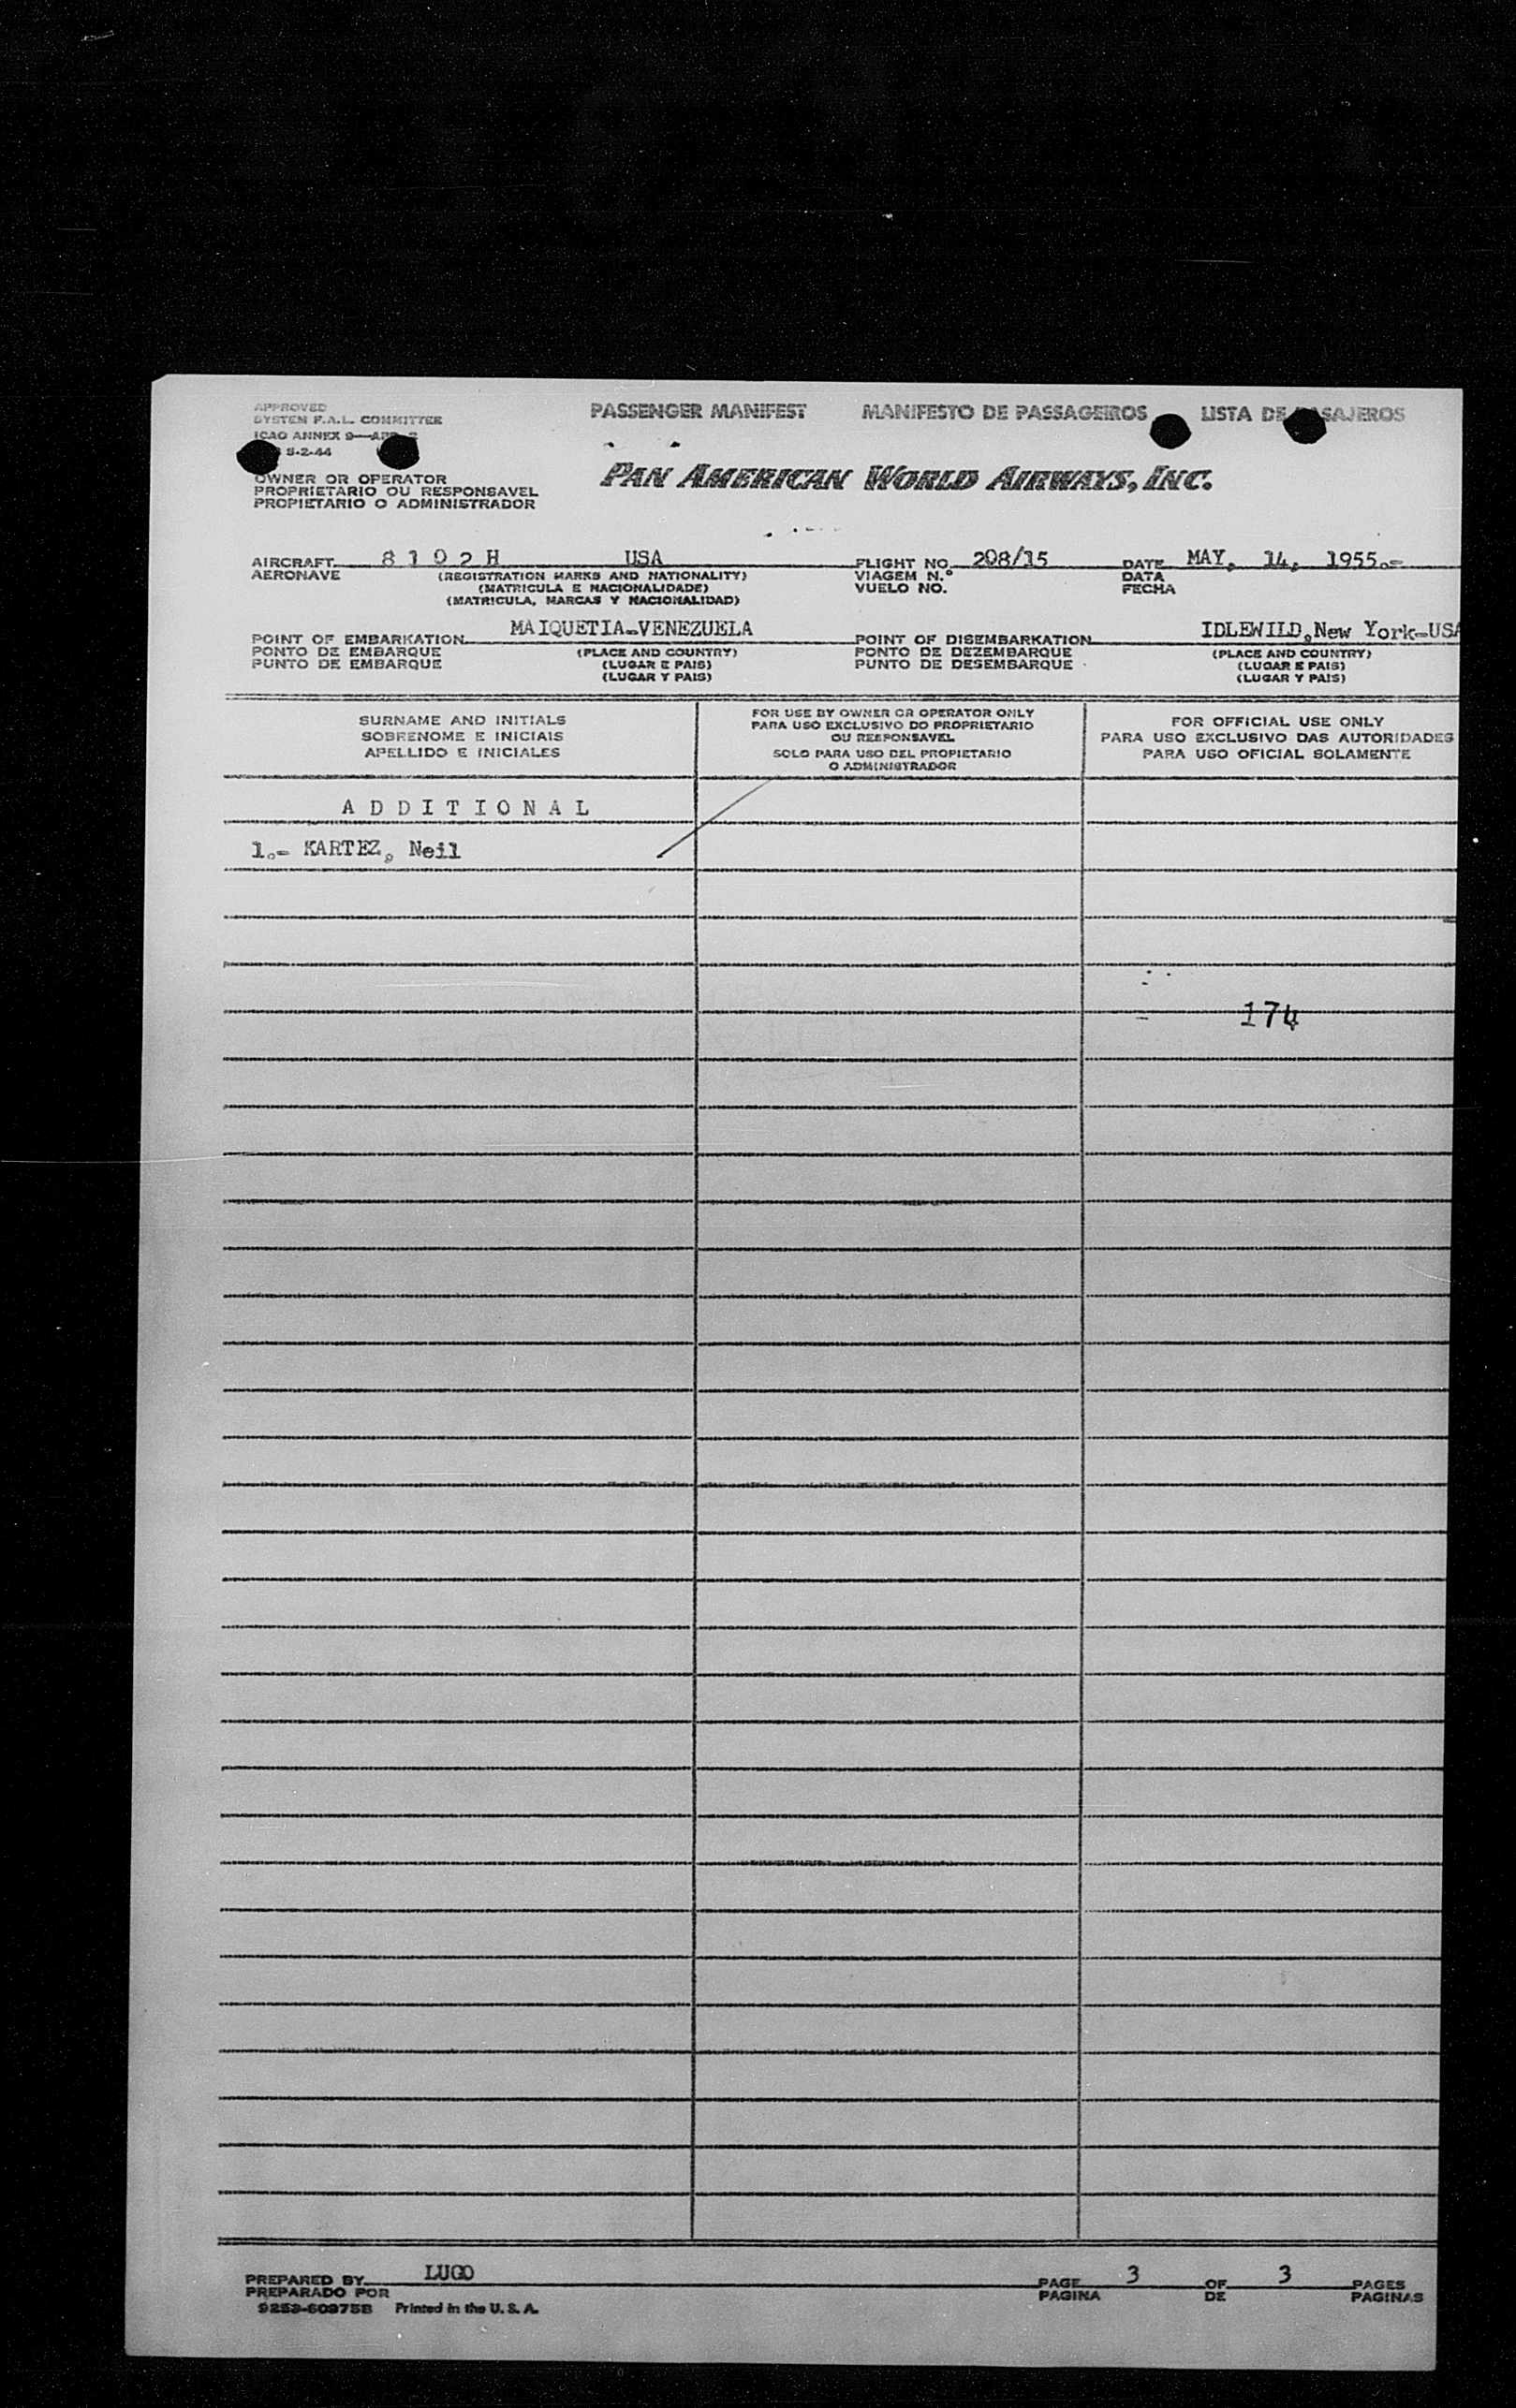 APPROVED
SYSTEM F.A.L. COMMITTEE
ICAO ANNEX 9—
5-2-44
PASSENGER MANIFEST MANIFESTO DE PASSAGEIROS LISTA DE PASAJEROS
OWNER OR OPERATOR
PROPRIETARIO OU RESPONSAVEL
PROPIETARIO O ADMINISTRADOR
PAN AMERICAN WORLD AIRWAYS, INC.
AIRCRAFT 8 1 0 2 H USA FLIGHT NO. 208/15 DATE MAY, 14, 1955.-
AERONAVE (REGISTRATION MARKS AND NATIONALITY) VIAGEM N.º DATA
(MATRICULA E NACIONALIDADE) VUELO NO. FECHA
(MATRICULA, MARCAS Y NACIONALIDAD)
POINT OF EMBARKATION MAIQUETIA-VENEZUELA POINT OF DISEMBARKATION IDLEWILD,New York-USA
PONTO DE EMBARQUE (PLACE AND COUNTRY) PONTO DE DEZEMBARQUE (PLACE AND COUNTRY)
PUNTO DE EMBARQUE (LUGAR E PAIS) PUNTO DE DESEMBARQUE (LUGAR E PAIS)
(LUGAR Y PAIS) (LUGAR Y PAIS)
SURNAME AND INITIALS
SOBRENOME E INICIAIS
APELLIDO E INICIALES
FOR USE BY OWNER OR OPERATOR ONLY
PARA USO EXCLUSIVO DO PROPRIETARIO
OU RESPONSAVEL
SOLO PARA USO DEL PROPIETARIO
O ADMINISTRADOR
FOR OFFICIAL USE ONLY
PARA USO EXCLUSIVO DAS AUTORIDADES
PARA USO OFICIAL SOLAMENTE
A D D I T I O N A L
1.- KARTEZ, Neil
174
PREPARED BY LUGO PAGE 3 OF 3 PAGES
PREPARADO POR PAGINA DE PAGINAS
9253-60375B Printed in the U. S. A.